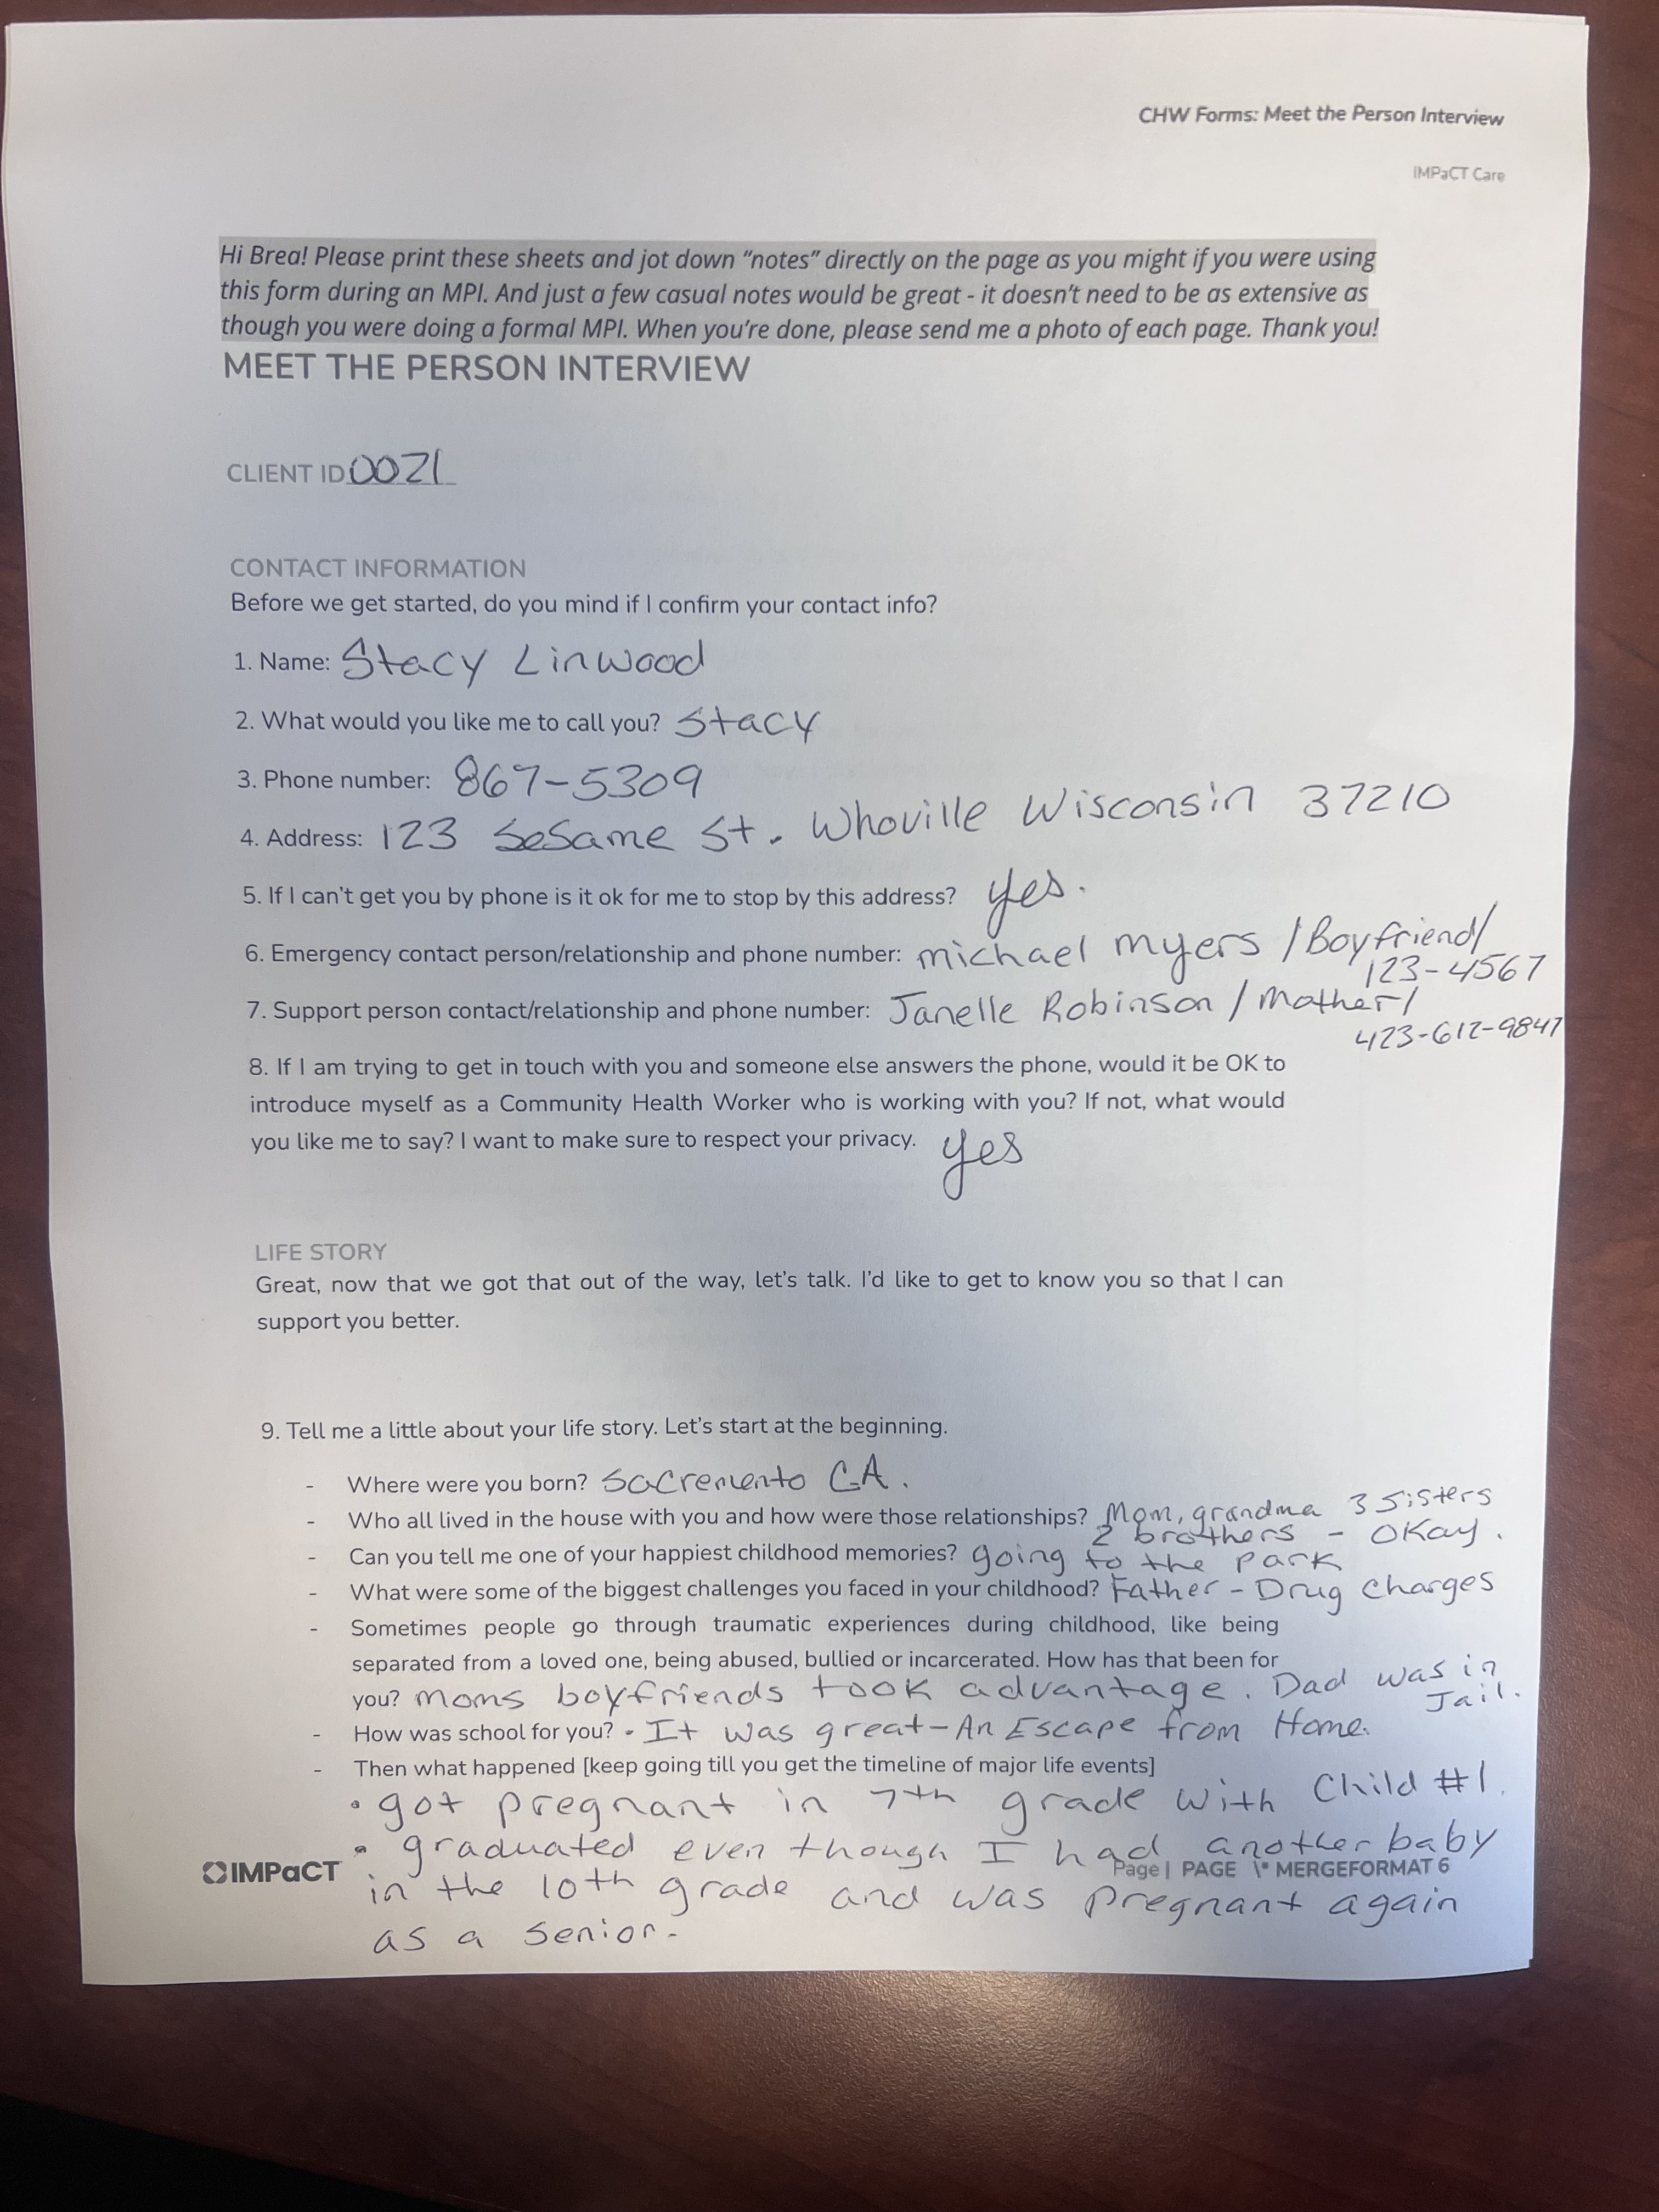 CHW Forms: Meet the Person Interview
IMPaCT Care
Hi Brea! Please print these sheets and jot down “notes” directly on the page as you might if you were using
this form during an MPI. And just a few casual notes would be great - it doesn’t need to be as extensive as
though you were doing a formal MPI. When you’re done, please send me a photo of each page. Thank you!
MEET THE PERSON INTERVIEW
CLIENT ID 0021
CONTACT INFORMATION
Before we get started, do you mind if I confirm your contact info?
1. Name: Stacy Linwood
2. What would you like me to call you? Stacy
3. Phone number: 867-5309
4. Address: 123 Sesame St. Whoville Wisconsin 37210
5. If I can’t get you by phone is it ok for me to stop by this address? yes.
6. Emergency contact person/relationship and phone number: michael myers / Boyfriend/
123-4567
7. Support person contact/relationship and phone number: Janelle Robinson / Mother/
423-612-9847
8. If I am trying to get in touch with you and someone else answers the phone, would it be OK to
introduce myself as a Community Health Worker who is working with you? If not, what would
you like me to say? I want to make sure to respect your privacy. yes
LIFE STORY
Great, now that we got that out of the way, let’s talk. I’d like to get to know you so that I can
support you better.
9. Tell me a little about your life story. Let’s start at the beginning.
- Where were you born? Sacremento CA.
- Who all lived in the house with you and how were those relationships? Mom, grandma 3 Sisters
2 brothers - Okay.
- Can you tell me one of your happiest childhood memories? going to the park
- What were some of the biggest challenges you faced in your childhood? Father - Drug Charges
- Sometimes people go through traumatic experiences during childhood, like being
separated from a loved one, being abused, bullied or incarcerated. How has that been for
you? moms boyfriends took advantage. Dad was in
Jail.
- How was school for you? • It was great - An Escape from Home.
- Then what happened [keep going till you get the timeline of major life events]
• got pregnant in 7th grade with Child #1.
• graduated even though I had another baby
IMPaCT Page | PAGE \* MERGEFORMAT 6
in the 10th grade and was pregnant again
as a senior.